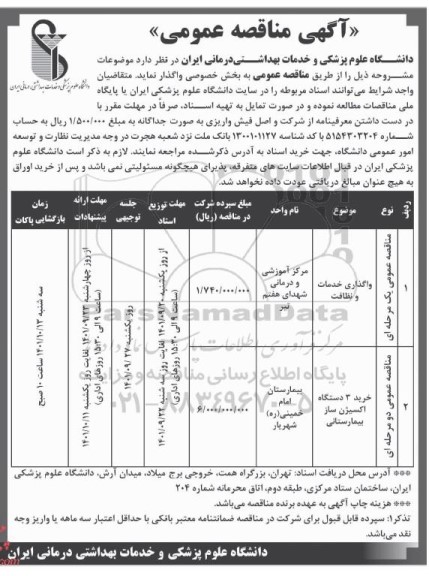 «آگهی مناقصه عمومی»
دانشگاه علوم پزشکی و خدمات بهداشتی درمانی ایران
دانشگاه علوم پزشکی و خدمات بهداشتی‌درمانی ایران در نظر دارد موضوعات
مشروحه ذیل را از طریق مناقصه عمومی به بخش خصوصی واگذار نماید. متقاضیان
واجد شرایط می‌توانند اسناد مربوطه را در سایت دانشگاه علوم پزشکی ایران یا پایگاه
ملی مناقصات مطالعه نموده و در صورت تمایل به تهیه اسناد، صرفاً در مهلت مقرر با
در دست داشتن معرفینامه از شرکت و اصل فیش واریزی به صورت جداگانه به مبلغ ۱/۵۰۰/۰۰۰ ریال به حساب
شماره ۵۱۵۴۳۰۳۲۰۴ با کد شناسه ۱۳۰۰۱۰۱۱۲۷ بانک ملت نزد شعبه هجرت در وجه مدیریت نظارت و توسعه
امور عمومی دانشگاه، جهت خرید اسناد به آدرس ذکرشده مراجعه نمایند. لازم به ذکر است دانشگاه علوم
پزشکی ایران در قبال اطلاعات سایت های متفرقه، پذیرای هیچگونه مسئولیتی نمی باشد و پس از خرید اوراق
به هیچ عنوان مبالغ دریافتی عودت داده نخواهد شد.
ردیف نوع موضوع نام واحد مبلغ سپرده شرکت در مناقصه (ریال) مهلت توزیع اسناد جلسه توجیهی مهلت ارائه پیشنهادات زمان بازگشایی پاکات
۱ مناقصه عمومی یک مرحله ای واگذاری خدمات و نظافت مرکز آموزشی و درمانی شهدای هفتم تیر ۱/۷۴۰/۰۰۰/۰۰۰
۲ مناقصه عمومی دو مرحله ای خرید ۳ دستگاه اکسیژن ساز بیمارستانی بیمارستان امام خمینی(ره) شهریار ۶/۰۰۰/۰۰۰/۰۰۰
از روز یکشنبه ۱۴۰۱/۰۹/۲۰ لغایت روز سه شنبه ۱۴۰۱/۰۹/۲۲ (ساعت ۹ الی ۱۵:۳۰ روزهای اداری)
روز یکشنبه ۱۴۰۱/۰۹/۲۷
از روز چهارشنبه ۱۴۰۱/۰۹/۲۳ لغایت روز یکشنبه ۱۴۰۱/۱۰/۱۱ (ساعت ۹ الی ۱۵:۳۰ روزهای اداری)
سه شنبه ۱۴۰۱/۱۰/۱۳ ساعت ۱۰ صبح
ParsNamadData
پایگاه اطلاع رسانی مناقصه و مزایده
۰۲۱-۸۸۳۴۹۶۷۰-۵
*** آدرس محل دریافت اسناد: تهران، بزرگراه همت، خروجی برج میلاد، میدان آرش، دانشگاه علوم پزشکی
ایران، ساختمان ستاد مرکزی، طبقه دوم، اتاق محرمانه شماره ۲۰۴
*** هزینه چاپ آگهی به عهده برنده مناقصه می‌باشد.
تذکر۱: سپرده قابل قبول برای شرکت در مناقصه ضمانتنامه معتبر بانکی با حداقل اعتبار سه ماهه یا واریز وجه
نقد می‌باشد.
دانشگاه علوم پزشکی و خدمات بهداشتی درمانی ایران